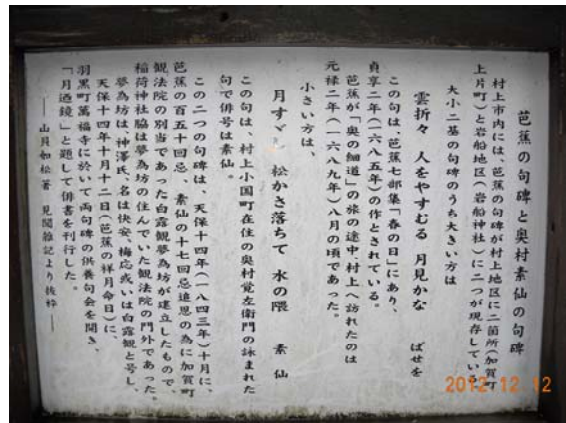 芭蕉の句碑と奥村素仙の句碑
村上市内には、芭蕉の句碑が村上地区に二箇所(加賀町
上片町)と岩船地区(岩船神社)に二つが現存している
大小二基の句碑のうち大きい方は
雲折々 人をやすむる 月見かな ばせを
この句は、芭蕉七部集「春の日」にあり、
貞享二年(一六八五年)の作とされている。
芭蕉が「奥の細道」の旅の途中、村上へ訪れたのは
元禄二年(一六八九年)八月の頃であった。
小さい方は、
月すゞし 松かさ落ちて 水の隈 素仙
この句は、村上小国町在住の奥村覚左衛門の詠まれた
句で俳号は素仙。
この二つの句碑は、天保十四年(一八四三年)十月に、
芭蕉の百五十回忌、素仙の十七回忌追思の為に加賀町
観法院の別当であった白露観夢為坊が建立したもので、
稲荷神社脇は夢為坊の住んでいた観法院の門外であった。
夢為坊は、神澤氏、名は快安、梅応或いは白露観と号し、
天保十四年十月十二日(芭蕉の祥月命日)に、
羽黒町萬福寺に於いて両句碑の供養句会を開き、
「月酒鏡」と題して俳書を刊行した。
―― 山貝如松著 見聞雑記より抜粋 ――
2012 12 12